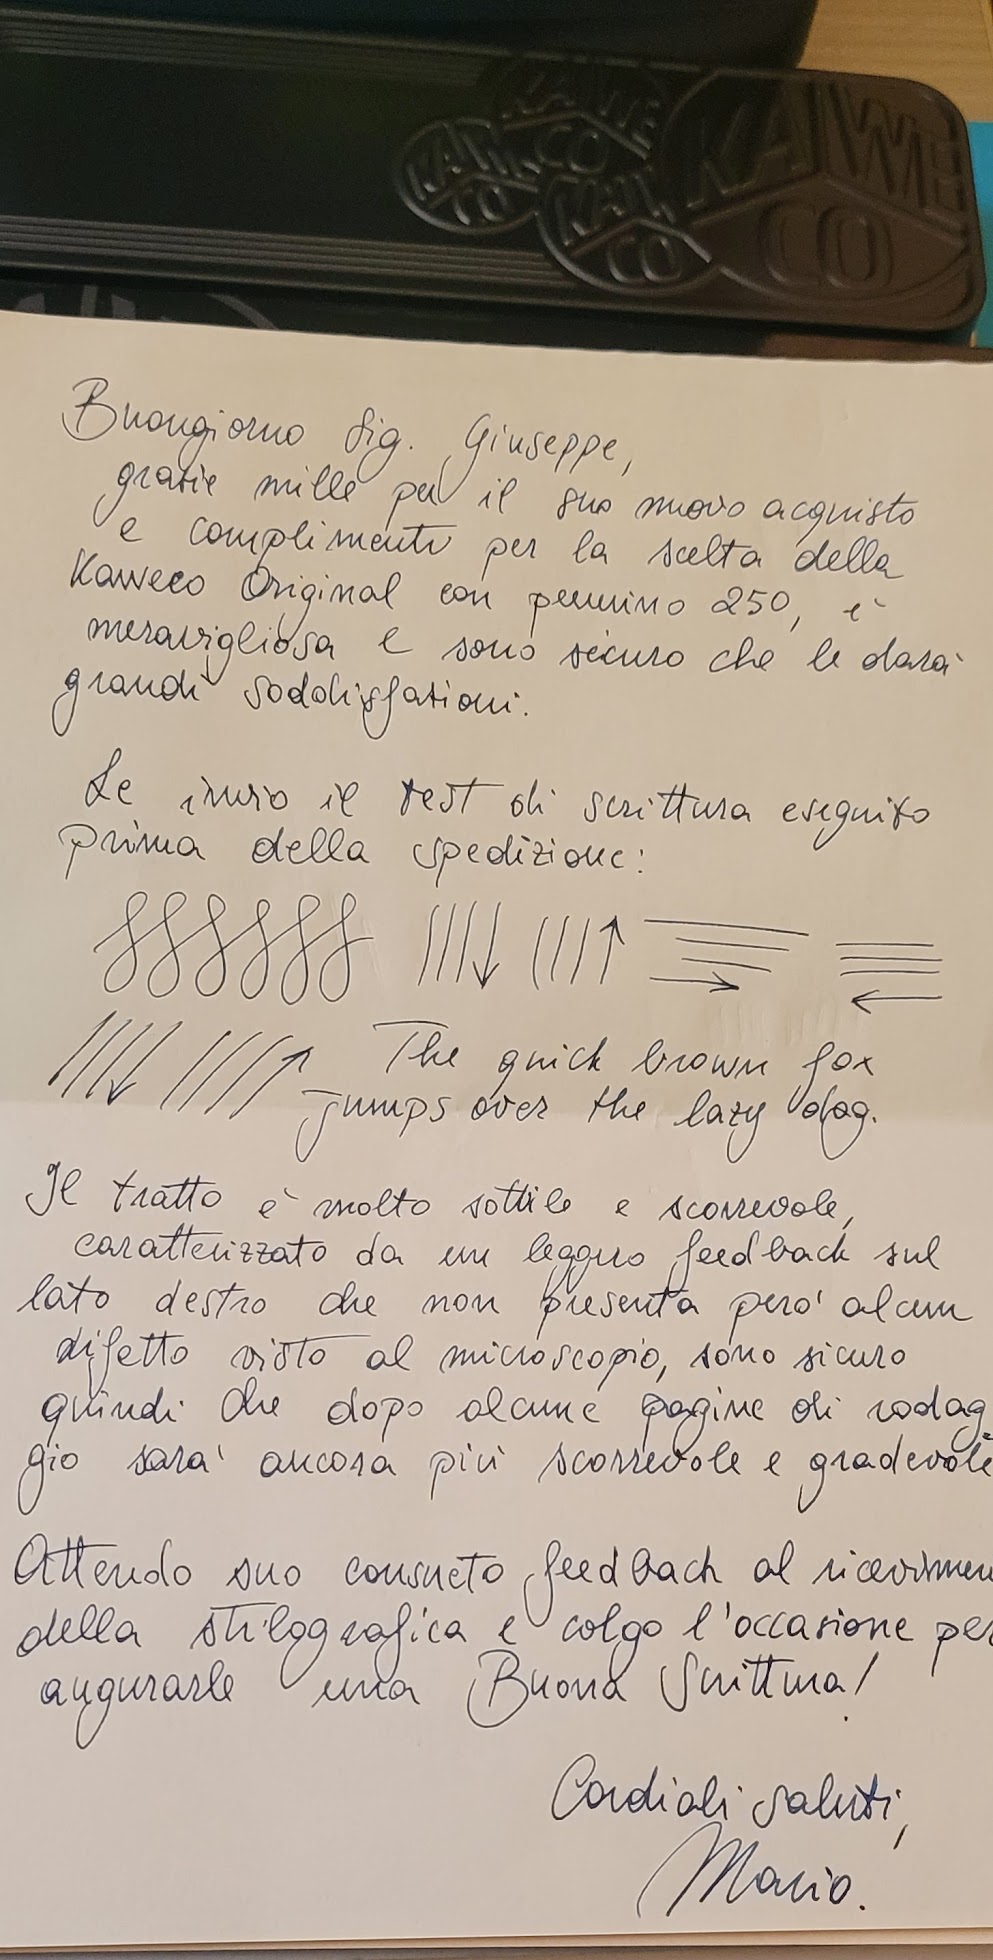 KAWE
CO
KAWE
CO
KAWE
CO
KAWE
CO
Buongiorno Sig. Giuseppe,
grazie mille per il suo nuovo acquisto
e complimenti per la scelta della
Kaweco Original con pennino 250, è
meravigliosa e sono sicuro che le darà
grandi soddisfazioni.
Le invio il test di scrittura eseguito
prima della spedizione:
The quick brown fox
jumps over the lazy dog.
Il tratto è molto sottile e scorrevole,
caratterizzato da un leggero feedback sul
lato destro che non presenta però alcun
difetto visto al microscopio, sono sicuro
quindi che dopo alcune pagine di rodag=
gio sarà ancora più scorrevole e gradevole
Attendo suo consueto feedback al ricevimen
della stilografica e colgo l'occasione per
augurarle una Buona Scrittura!
Cordiali saluti,
Mario.